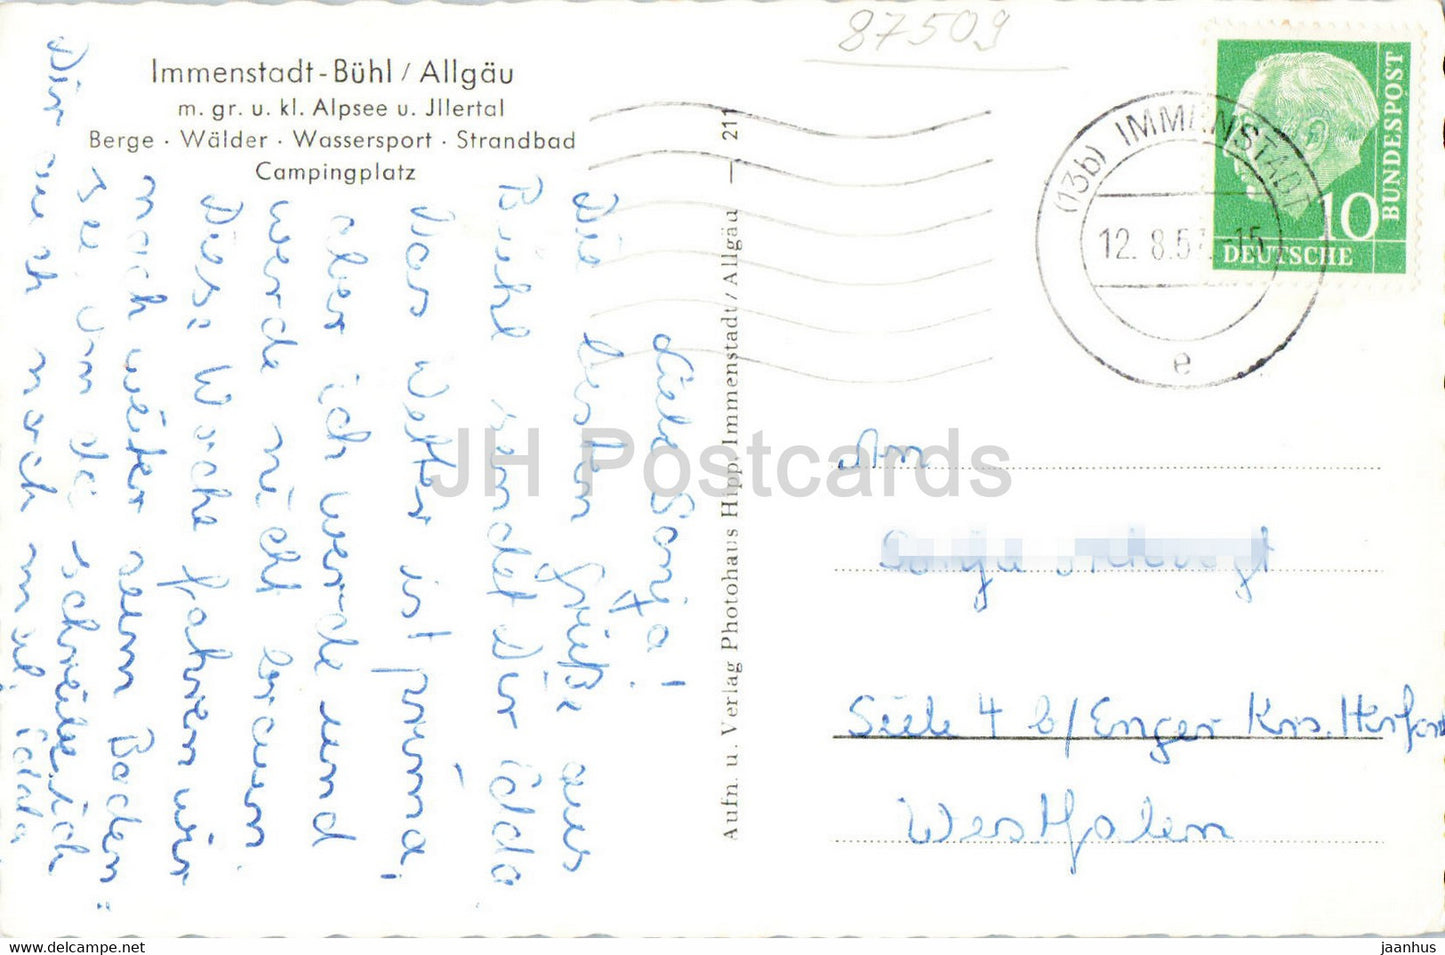 87509
Immenstadt-Bühl / Allgäu
m. gr. u. kl. Alpsee u. Jllertal
Berge · Wälder · Wassersport · Strandbad
Campingplatz
Liebe Sonja!
Die besten Grüße aus
Bühl sendet Dir Edda
Das Wetter ist prima,
aber ich werde und
werde nicht braun.
Diese Woche fahren wir
noch weiter zum Boden=
see, von da schreibe ich
Dir auch noch mal. Edda
Aufn. u. Verlag Photohaus Hipp, Immenstadt/Allgäu — 211
(13b) IMMENSTADT
12. 8.57.-15
e
BUNDESPOST
10
DEUTSCHE
An
Sonja
Siele 4 b/Enger Krs. Herford
Westfalen
JH Postcards
www.delcampe.net
jaanhus